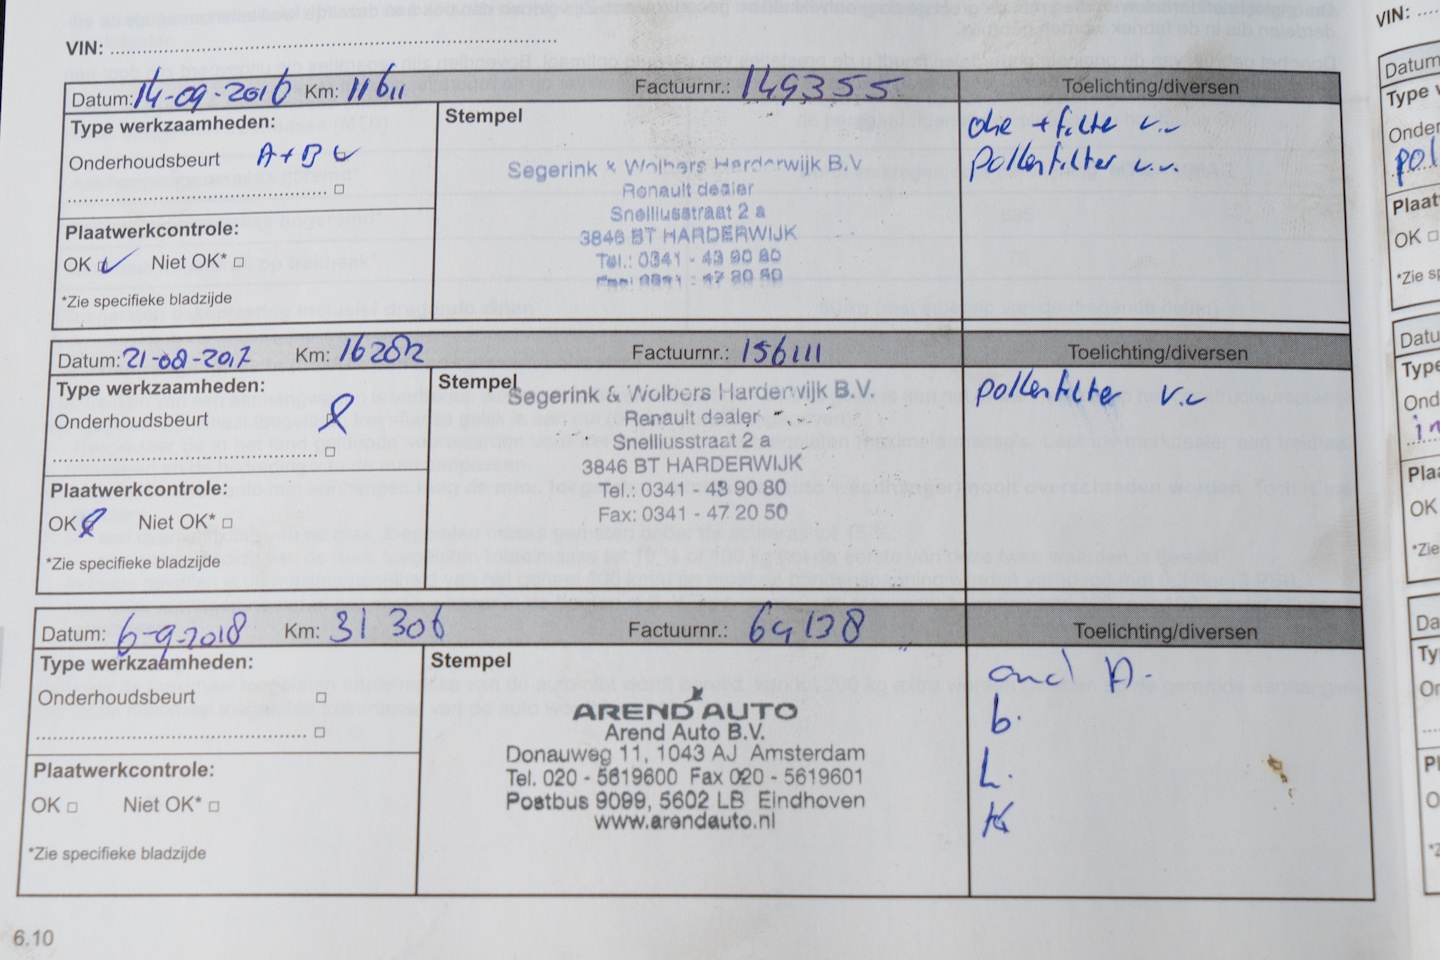 VIN:
Datum: 14-09-2016 Km: 11611 Factuurnr.: 149355 Toelichting/diversen
Type werkzaamheden: Stempel
olie + filter v.v
Onderhoudsbeurt A+B
pollenfilter v.v.
Segerink & Wolbers Harderwijk B.V
Renault dealer
Snelliusstraat 2 a
3846 BT HARDERWIJK
Tel.: 0341 - 43 90 80
Fax: 0341 - 47 20 50
Plaatwerkcontrole:
OK Niet OK*
*Zie specifieke bladzijde
Datum: 21-08-2017 Km: 16282 Factuurnr.: 156111 Toelichting/diversen
Type werkzaamheden: Stempel
pollenfilter v.v
Onderhoudsbeurt
Segerink & Wolbers Harderwijk B.V.
Renault dealer
Snelliusstraat 2 a
3846 BT HARDERWIJK
Tel.: 0341 - 43 90 80
Fax: 0341 - 47 20 50
Plaatwerkcontrole:
OK Niet OK*
*Zie specifieke bladzijde
Datum: 6-9-2018 Km: 31306 Factuurnr.: 69138 Toelichting/diversen
Type werkzaamheden: Stempel
ond A.
b.
L.
K
Onderhoudsbeurt
AREND AUTO
Arend Auto B.V.
Donauweg 11, 1043 AJ Amsterdam
Tel. 020 - 5619600 Fax 020 - 5619601
Postbus 9099, 5602 LB Eindhoven
www.arendauto.nl
Plaatwerkcontrole:
OK Niet OK*
*Zie specifieke bladzijde
6.10
VIN:
Datum
Type
OK